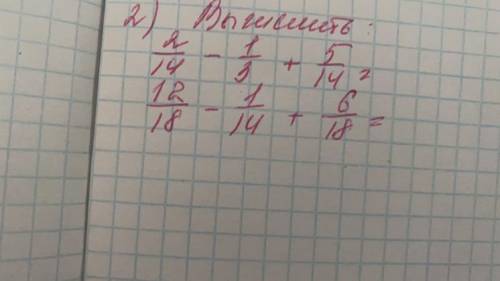 2) Вычислить:
2/14 - 1/3 + 5/14 =
12/18 - 1/14 + 6/18 =